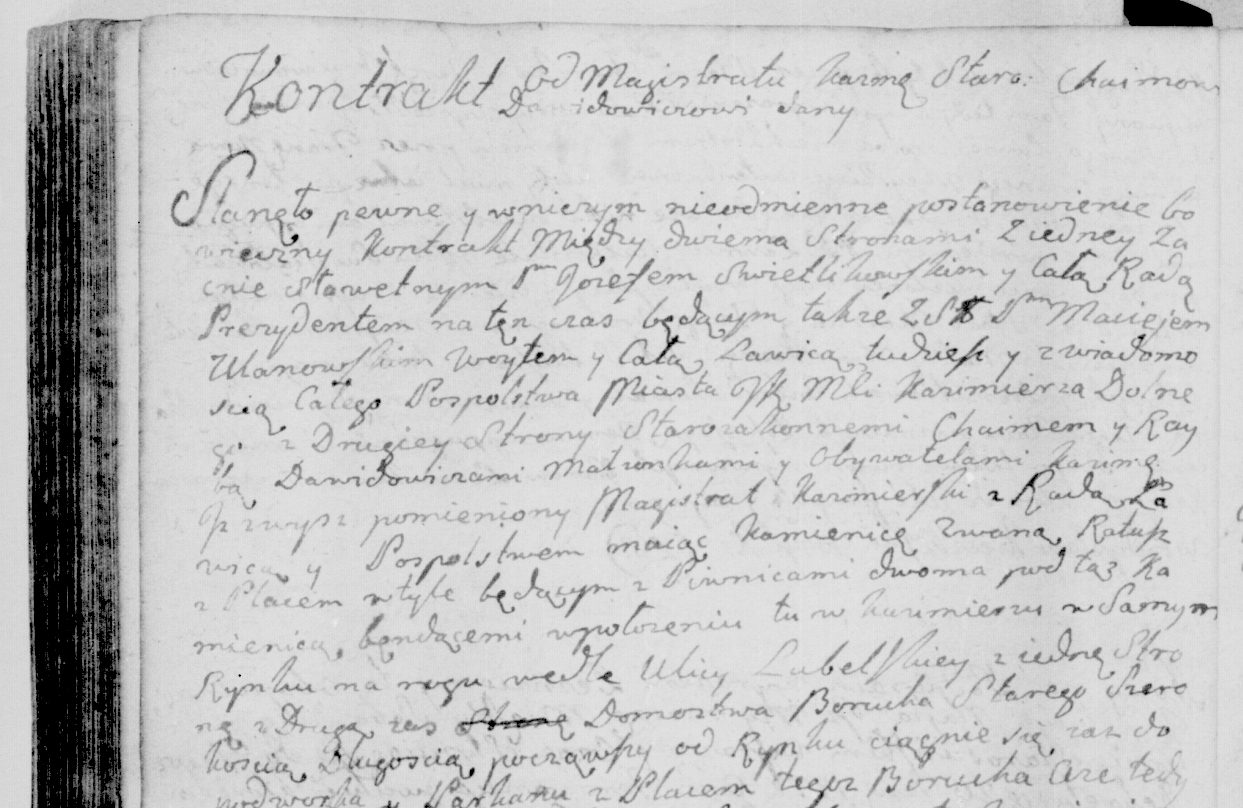 Kontrakt od Magistratu Kazimę Staro: Chaimowi
Dawidowiczowi dany
Stanęło pewne y wniczym nieodmienne postanowienie bo
wieczny Kontrakt Między dwiema Stronami Ziedney Za
cnie Sławetnym Pm Jozefem Swietlikowskim y Całą Radą
Prezydentem na tęn czas będącym takze Z Pm Maciejem
Ulanowskim Woytem y Całą Lawicą tudziesz y zwiadomo
scią Całego Pospolstwa Miasta Mści Kazimierza Dolne
go z Drugiey Strony Starozakonnemi Chaimem y Ray
bą Dawidowiczami Małzonkami y Obywatelami Kazimę
Jz zwysz pomieniony Magistrat Kazimierski z Radą Ła
wicą y Pospolstwem maiąc Kamienicę Zwaną Ratusz
z Placem wtyle będącym z Piwnicami dwoma pod tąz Ka
mienicą bęndącemi wpołozeniu tu w Kazimierzu w Samym
Rynku na rogu wedle Ulicy Lubelskiey z iednę Stro
nę z Drugą zas Domostwa Borucha Starego Szero
koscią Długoscią począwszy od Rynku ciągnie się zaz do
podworka y Parkanu z Placem tegoz Borucha Cze tedy